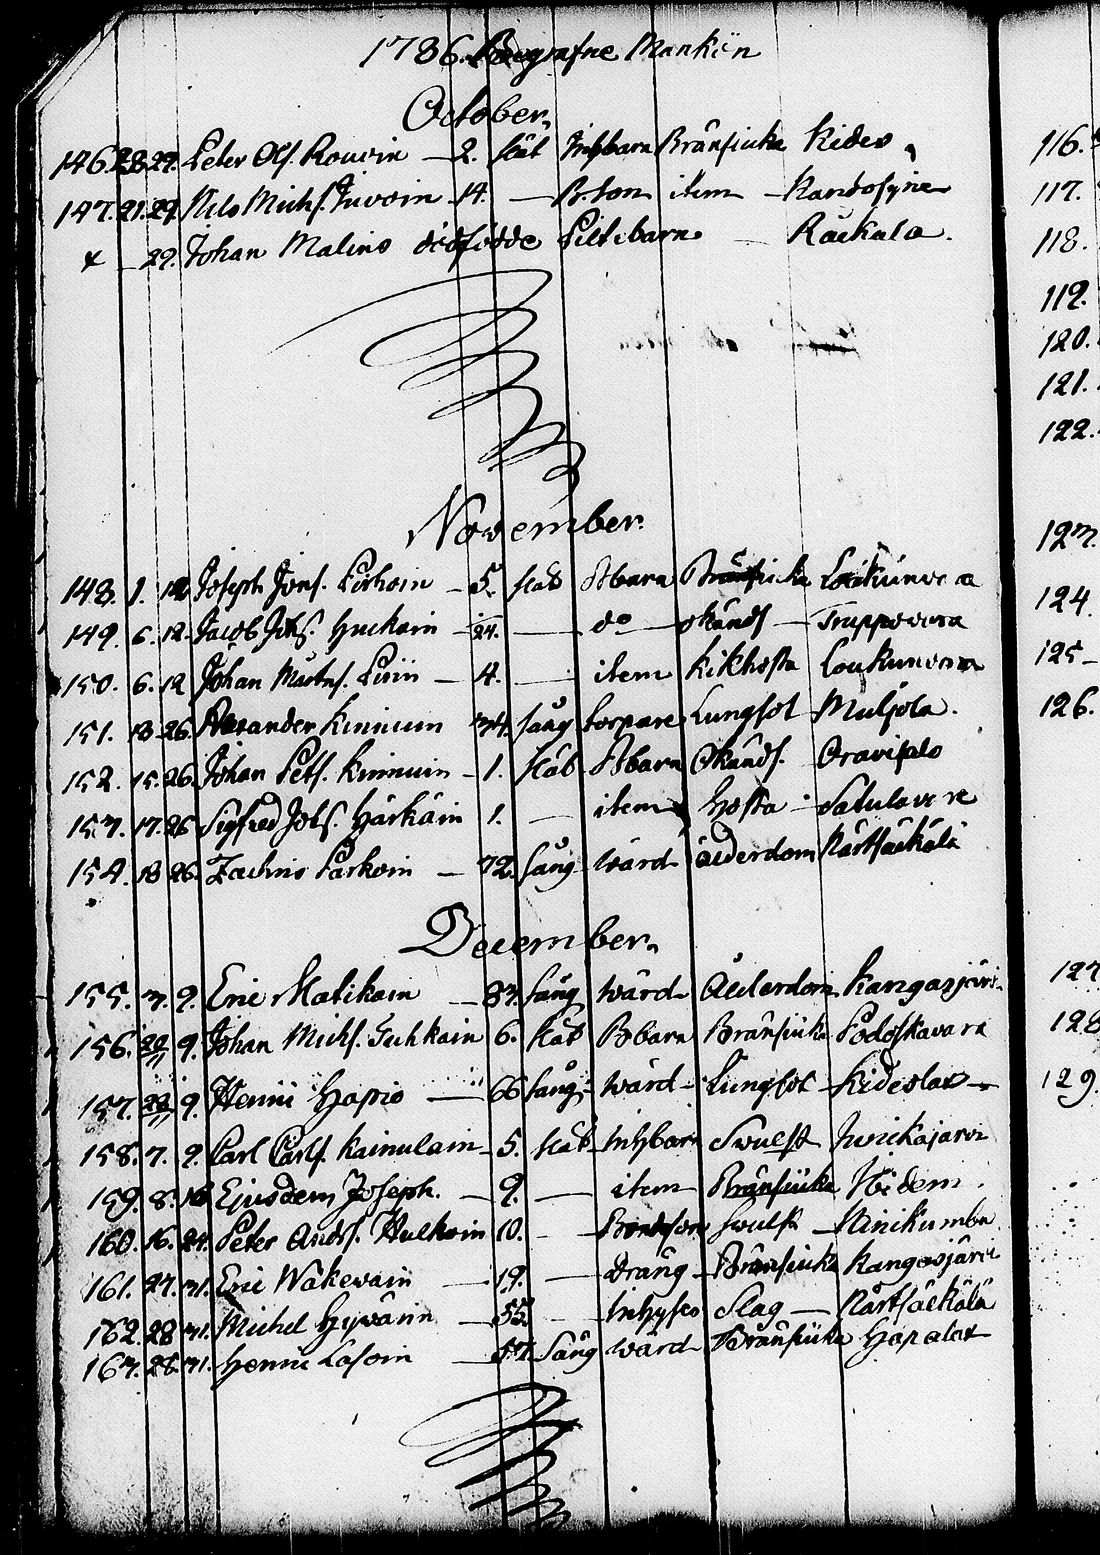 1786. Begrafne Mankön
October.
146. 28 29. Peter Olfs. Rouvin — 2. klåt Inhbarn Brånsiuka Kides
147. 21. 29. Nils Michs. Juvoin — 14. — B. Son item — Kandosyrie
x — 29. Johan Malins dödfödde Piltebarn — Räckala.
November.
148. 1. 12 Joseph Jons. — 5. klåt Bbarn Brånsiuka Loukunvara
149. 6. 12. Jacob Johs. Huckain — 24. — do — okänds — Truppovara
150. 6. 12 Johan Mårtns. — 4. — item Kikhosta Loukunvara
151. 13. 26. Alexander Kinnuin 34. sång torpare Lungsot Muljola.
152. 15. 26. Johan Pets. Kinnuin — 1. klåt Bbarn Okänds. Oravisalo
153. 17. 26 Sigfred Johs. Härkäin 1. — item Hosta Satulavare
154. 18 26. Zachris Parkoin — 72. sång wärd ålderdom Närtsäckälä
December.
155. 3. 9. Eric Matikain — 83. sång wärd Ålderdom Kangasjärvi.
156. 22 9. Johan Michs. Tuhkain 6. klåt Bbarn Brånsiuka Potoskavara
157. 22 9. Henric Hapio — 66 sång. wärd Lungsot Kideslax
158. 7. 9. Carl Carls. Kainulain 5. klåt Inhbarn Swulst Juickajarvi
159. 8. 16 Ejusdem Joseph. — 9. — item Brånsiuka Ibidem.
160. 16. 24. Peter Ands. Hulkoin 10. — Bondson Swulst — Ninikumbu
161. 27. 31. Eric Wäkewäin — 19. — dräng Brånsiuka Kangasjärvi
162. 28 31. Michel Hyvärin — 55. — Inhyses Slag — Närtsäckälä
163. 28. 31. Henric Lasoin — 57. sång wärd Brånsiuka Hapalax
116.
117.
118.
119.
120.
121.
122.
123.
124.
125
126.
127
128
129.